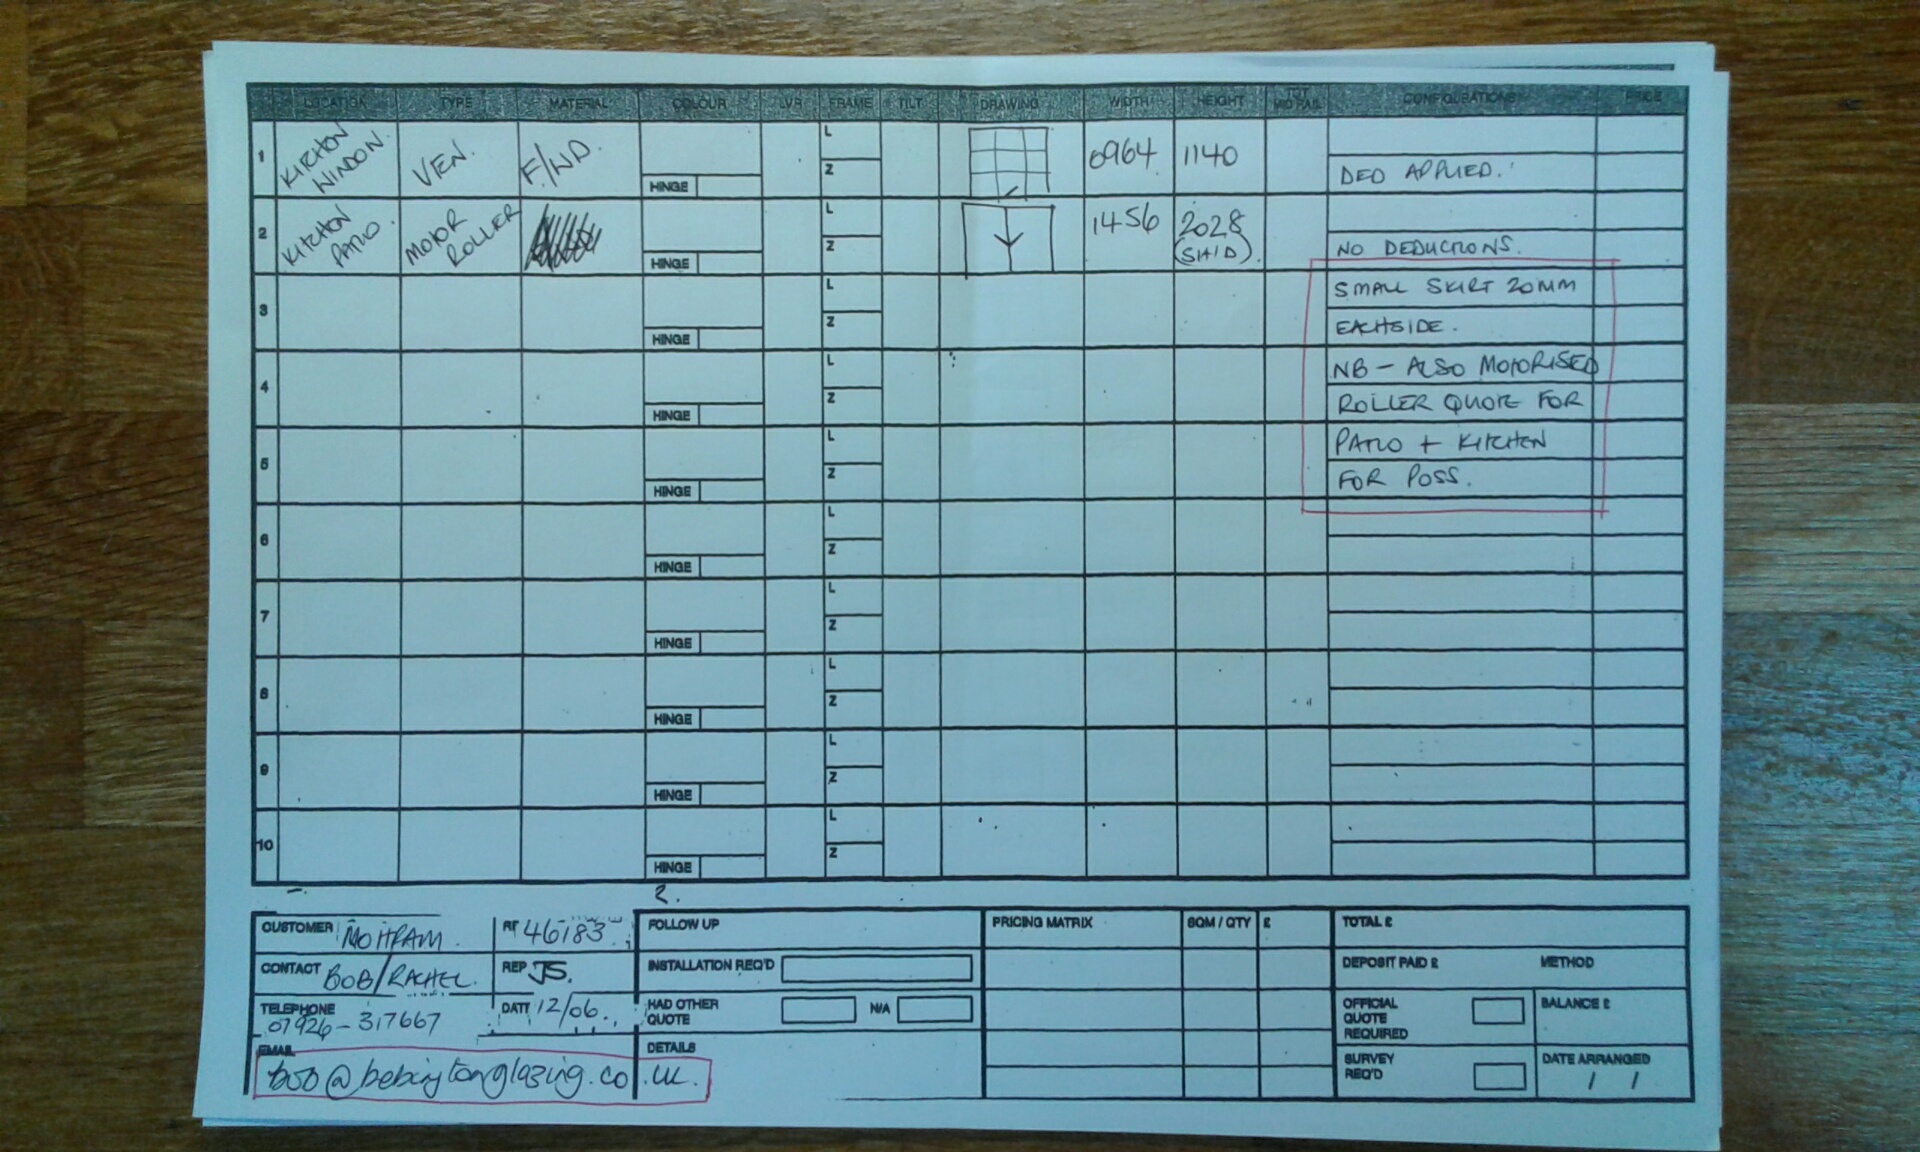 LOCATION TYPE MATERIAL COLOUR LVR FRAME TILT DRAWING WIDTH HEIGHT TOT MID RAIL CONFIGURATIONS PRICE
1 KITCHEN WINDOW. VEN. F/ND. HINGE L Z 0964 1140 DED APPLIED.
2 KITCHEN PATIO. MOTOR ROLLER HINGE L Z 1456 2028 NO DEDUCTIONS.
3 HINGE L Z SMALL SKIRT 20MM
EACHSIDE.
4 HINGE L Z NB - ALSO MOTORISED
ROLLER QUOTE FOR
5 HINGE L Z PATIO + KITCHEN
FOR POSS.
6 HINGE L Z
7 HINGE L Z
8 HINGE L Z
9 HINGE L Z
10 HINGE L Z
2.
CUSTOMER MOHRAM RT 46183
CONTACT BOB/RACHEL. REP JS.
TELEPHONE 07926-317667 DATE 12/06.
EMAIL
bob@bebingtonglazing.co.uk.
FOLLOW UP
INSTALLATION REQ'D
HAD OTHER QUOTE N/A
DETAILS
PRICING MATRIX SQM / QTY £
TOTAL £
DEPOSIT PAID £ METHOD
OFFICIAL QUOTE REQUIRED BALANCE £
SURVEY REQ'D DATE ARRANGED
/ /